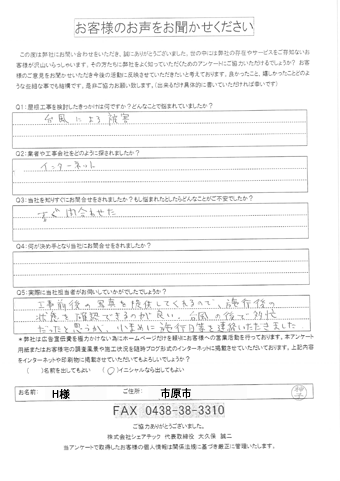 お客様のお声をお聞かせください
この度は弊社にお問い合わせをいただき、誠にありがとうございました。世の中には弊社の存在やサービスをご存知ないお
客様が沢山いらっしゃいます。その方たちに弊社をよく知っていただくためのアンケートにご協力いただけるでしょうか？お
客様のご意見をお聞かせいただき今後の活動に反映させていただきたいと考えております。良かったこと、嬉しかったことどのよ
うな些細な事でも結構です。是非ご協力お願い致します。（出来るだけ具体的に書いていただければ幸いです）
Q1：屋根工事を検討したきっかけは何ですか？どんなことで悩まれていましたか？
台風による被害
Q2：業者や工事会社をどのように探されましたか？
インターネット
Q3：当社を知りすぐにお問合せをされましたか？もし悩まれたとしたらどんなことがご不安でしたか？
すぐ問合わせた
Q4：何が決め手となり当社にお問合せをされましたか？
Q5：実際に当社担当者がお伺いしていかがでしたでしょうか？
工事前後の写真を提供してくれるので、施行後の
状態を確認できるのが良い。台風の後で多忙
だったと思うが、小まめに施行日等を連絡いただきました
＊弊社は広告宣伝費を極力かけない為にホームページだけを頼りにお客様への営業活動を行っております。本アンケート
用紙またはお客様宅の調査風景や施工状況を随時ブログ形式のインターネットに掲載させていただいております。上記内容
をインターネットや印刷物に掲載させていただいてもよろしいでしょうか？
（　）名前を出してもよい　（○）イニシャルなら出してもよい
お名前： H様 ご住所： 市原市
FAX 0438-38-3310
ご協力ありがとうございました。
株式会社シェアテック 代表取締役 大久保 誠二
当アンケートで取得したお客様の個人情報は関係法規に基づき厳正に管理いたします。